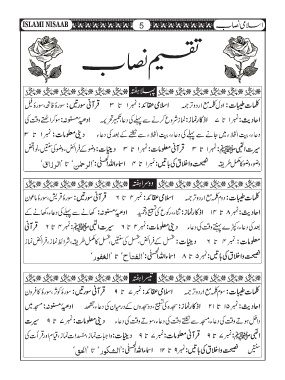 ISLAMI NISAAB 5 اسلامی نصاب
تقسیم نصاب
پہلا ہفتہ
کلمات طیبات: اول کلمہ مع اردو ترجمہ اسلامی عقائد: نمبر ۱ تا ۳ قرآنی سورتیں: سورۃ فاتحہ، سورۃ فیل
احادیث: نمبر ۱ تا ۷ اذکار نماز: نماز شروع کرنے سے پہلے کی دعا، تکبیر تحریمہ ادعیہ مسنونہ: سو کر اٹھتے وقت کی
دعا، بیت الخلاء میں جانے سے پہلے کی دعا، بیت الخلاء سے نکلنے کے بعد کی دعا دینی معلومات: نمبر ۱ تا ۳ سیرت
النبی ﷺ: نمبر ۱ تا ۳ دینیات: وضو کے فرائض، وضو کی سنتیں، نواقض
وضو، وضو کا مکمل طریقہ نصیحت و اخلاق کی باتیں: نمبر ۱ تا ۴ اسماء اللہ الحسنیٰ: "الرحمٰن" تا "الرزاق"
دوسرا ہفتہ
کلمات طیبات: دوم کلمہ مع اردو ترجمہ اسلامی عقائد: نمبر ۴ تا ۶ قرآنی سورتیں: سورۃ قریش، سورۃ ماعون
احادیث: نمبر ۸ تا ۱۴ اذکار نماز: ثناء، رکوع کی تسبیح ادعیہ مسنونہ: کھانے سے پہلے کی دعا، کھانے کے
بعد کی دعا، دینی معلومات: نمبر ۴ تا ۶ سیرت
النبی ﷺ: نمبر ۴ تا ۶ دینیات: غسل کے فرائض، غسل کی سنتیں، غسل کا مکمل طریقہ، شرائط نماز، فرائض نماز
نصیحت و اخلاق کی باتیں: نمبر ۵ تا ۸ اسماء اللہ الحسنیٰ: "الفتاح" تا "الغفور"
تیسرا ہفتہ
کلمات طیبات: سوم کلمہ مع اردو ترجمہ اسلامی عقائد: نمبر ۷ تا ۹ قرآنی سورتیں: سورۃ کوثر، سورۃ کافرون
احادیث: نمبر ۱۵ تا ۲۱ اذکار نماز: سجدہ کی تسبیح، دو سجدوں کے درمیان کی دعا، تشہد ادعیہ مسنونہ: مسجد میں
داخل ہوتے وقت کی دعا، مسجد سے نکلتے وقت کی دعا، سوتے وقت کی دعا دینی معلومات: نمبر ۷ تا ۹ سیرت
النبی ﷺ: نمبر ۷ تا ۹ دینیات: واجبات نماز، مفسدات نماز،
نصیحت و اخلاق کی باتیں: نمبر ۹ تا ۱۲ اسماء اللہ الحسنیٰ: "الشکور" تا "الحق"